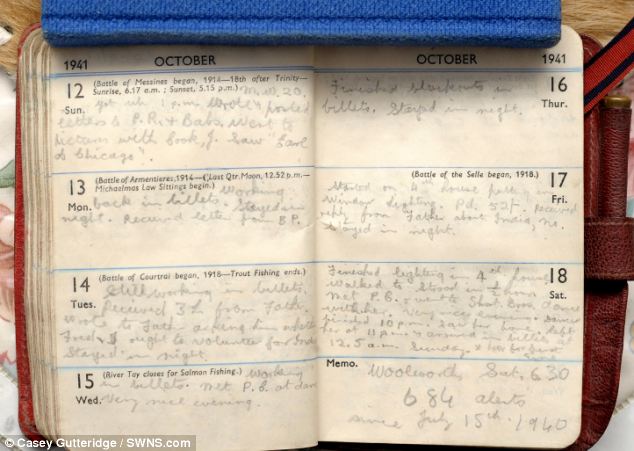 1941 OCTOBER
12 (Battle of Messines began, 1914—18th after Trinity—
Sunrise, 6.17 a.m.; Sunset, 5.15 p.m.)
Sun.
1 p.m. Wrote & posted
letters to P.R. & Babs. Went to
pictures with Cook, J. Saw "Earl
of Chicago".
13 (Battle of Armentieres, 1914—Last Qtr. Moon, 12.52 p.m.—
Michaelmas Law Sittings begin.) Working
Mon. back in billets. Stayed in
night. Received letter from B.P.
14 (Battle of Courtrai began, 1918—Trout Fishing ends.)
Still working in billets.
Tues. Received from Fath
wrote to Father asking him whether
Fred & I ought to volunteer for India
Stayed in night.
15 (River Tay closes for Salmon Fishing.) Working
in billets. Met P.B. at dance
Wed. Very nice evening.
OCTOBER 1941
16
Finished blackouts in
billets. Stayed in night.
Thur.
(Battle of the Selle began, 1918.) 17
Started on 4th house
window lighting. Pd. 52/-. Received
Fri.
reply from Father about India, no.
Stayed in night.
Finished lighting in 4th house 18
walked to Stood in
Met P.B. & went to
Sat.
with her. Very nice evening.
10 p.m. Saw her home. Left
her at 11 p.m. & arrived in billets at
12.5 a.m. Sunday.
Memo.
Woolworth Sat. 6.30
684 alerts
since July 15th 1940
© Casey Gutteridge / SWNS.com